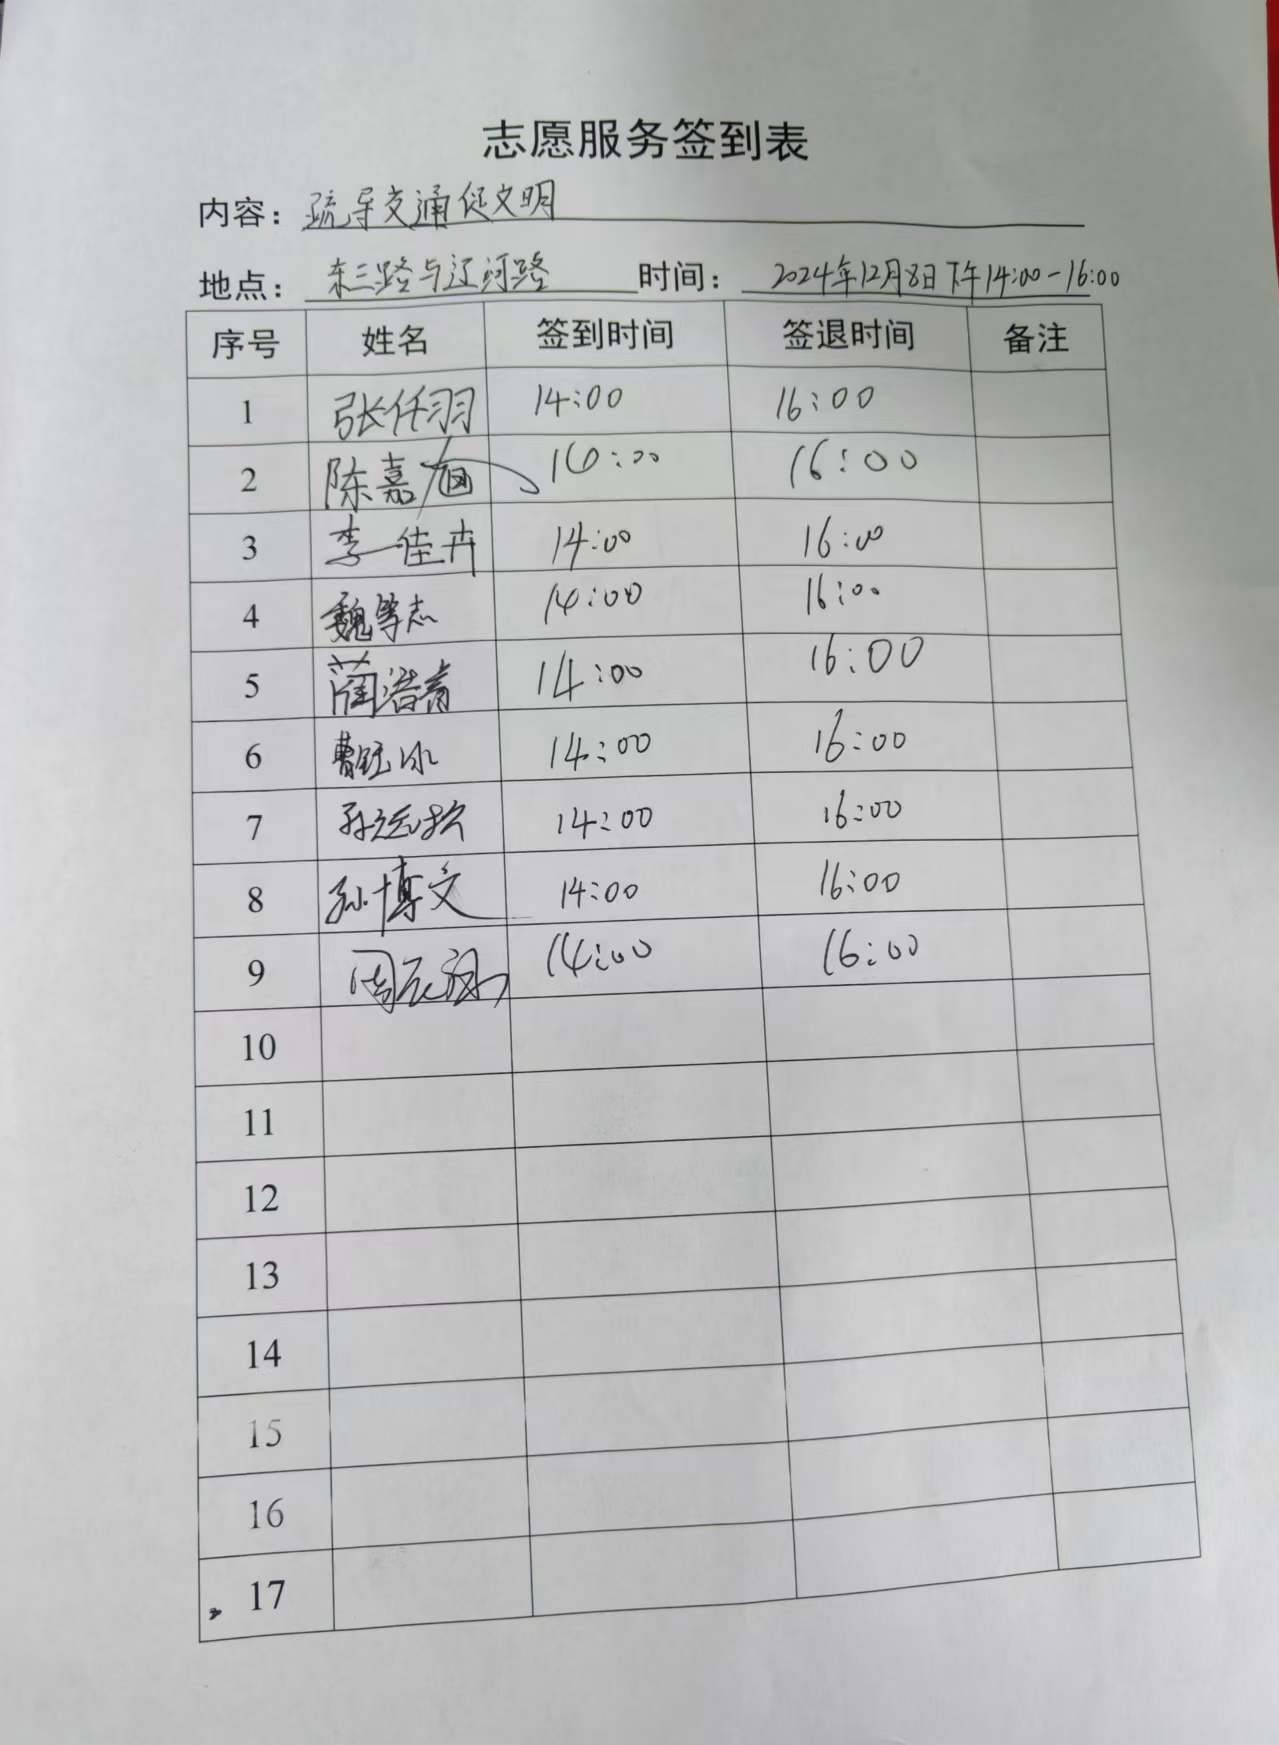 志愿服务签到表
内容：疏导交通促文明
地点：东三路与辽河路 时间：2024年12月8日下午14:00-16:00
序号 姓名 签到时间 签退时间 备注
1 张任羽 14:00 16:00
2 陈嘉旭 14:00 16:00
3 李佳卉 14:00 16:00
4 魏 志 14:00 16:00
5 蔺浩 14:00 16:00
6 曹钰冰 14:00 16:00
7 孙远 14:00 16:00
8 孙博文 14:00 16:00
9 周辰 14:00 16:00
10
11
12
13
14
15
16
17